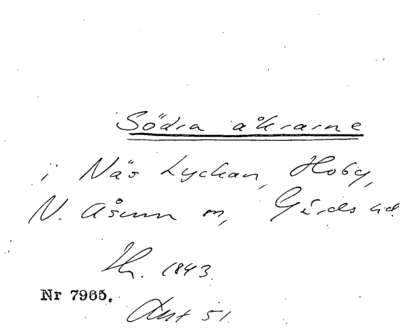 Södra åkrarne
i Näs Lyckan, Hoby,
N. Åsum m, Gärds hd.
Th. 1843.
Nr 7965.
Akt 51.